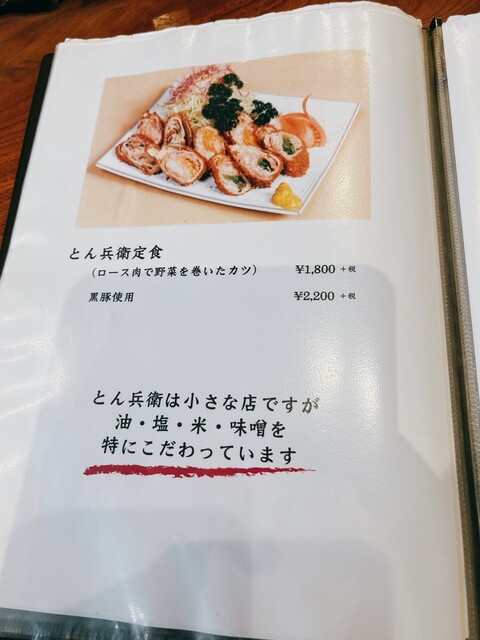 とん兵衛定食
（ロース肉で野菜を巻いたカツ） ¥1,800 +税
黒豚使用 ¥2,200 +税
とん兵衛は小さな店ですが
油・塩・米・味噌を
特にこだわっています